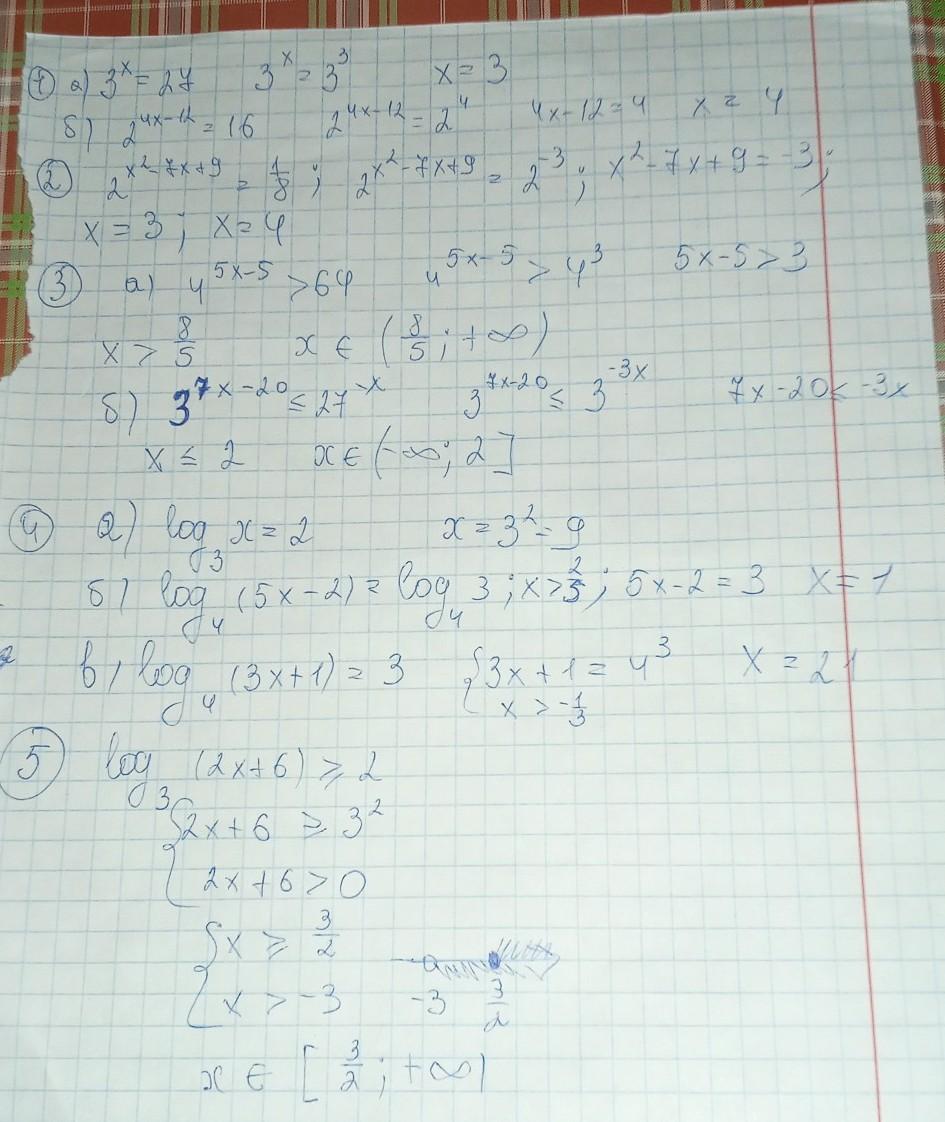 ① а) 3^x = 27 3^x = 3^3 x = 3
б) 2^{4x-12} = 16 2^{4x-12} = 2^4 4x-12 = 4 x = 4
② 2^{x^2-7x+9} = 1/8 ; 2^{x^2-7x+9} = 2^{-3} ; x^2-7x+9 = -3 ;
x = 3 ; x = 4
③ а) 4^{5x-5} > 64 4^{5x-5} > 4^3 5x-5 > 3
x > 8/5 x ∈ (8/5 ; +∞)
б) 3^{7x-20} ≤ 27^{-x} 3^{7x-20} ≤ 3^{-3x} 7x-20 ≤ -3x
x ≤ 2 x ∈ (-∞ ; 2]
④ а) log_3 x = 2 x = 3^2 = 9
б) log_4 (5x-2) = log_4 3 ; x > 2/5 ; 5x-2 = 3 x = 1
в) log_4 (3x+1) = 3 { 3x+1 = 4^3 x = 21
x > -1/3
⑤ log_3 (2x+6) ≥ 2
{ 2x+6 ≥ 3^2
2x+6 > 0
{ x ≥ 3/2
x > -3 -3 3/2
x ∈ [ 3/2 ; +∞)